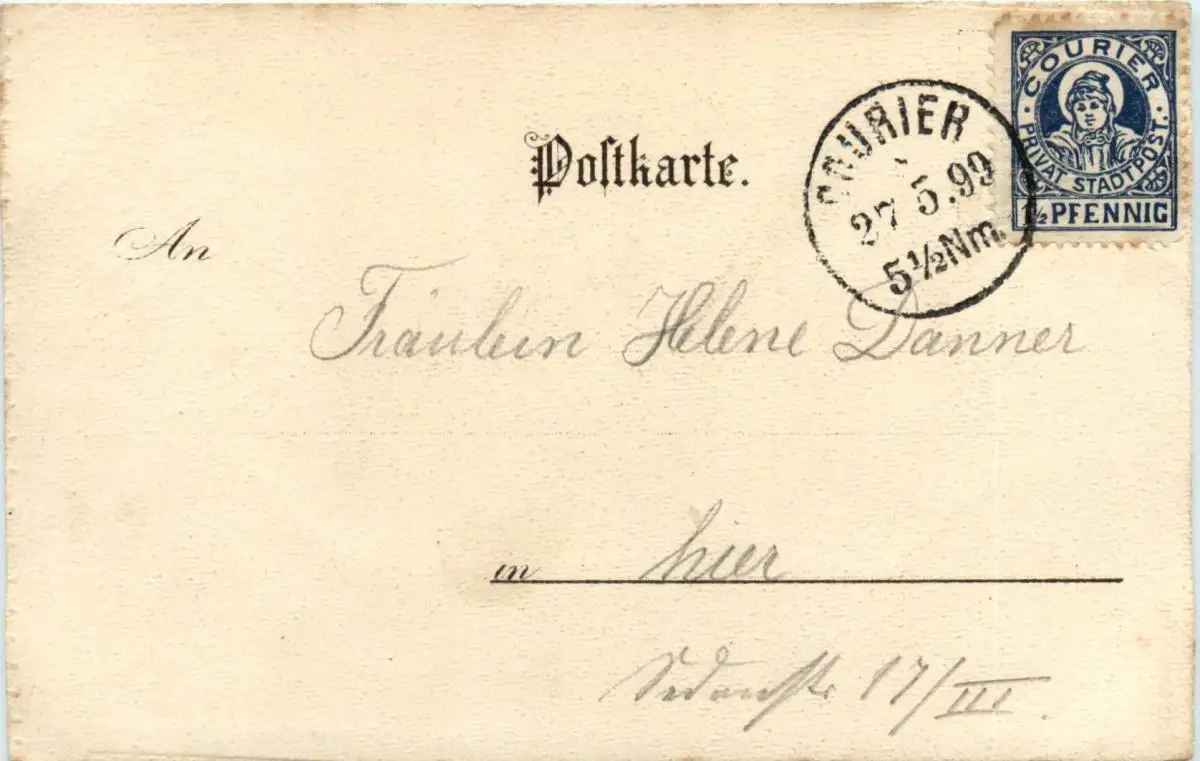 COURIER
PRIVAT STADTPOST.
1½ PFENNIG
COURIER
27 5.99
5½Nm.
Poſtkarte.
An
Fräulein Helene Danner
in hier
Sedanstr 17/III.